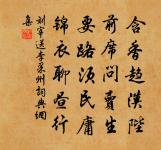 含香趨漢陛
前席問賈生
要路須民庸
錦衣聊晝行
劉宰送李果州詞典網
集